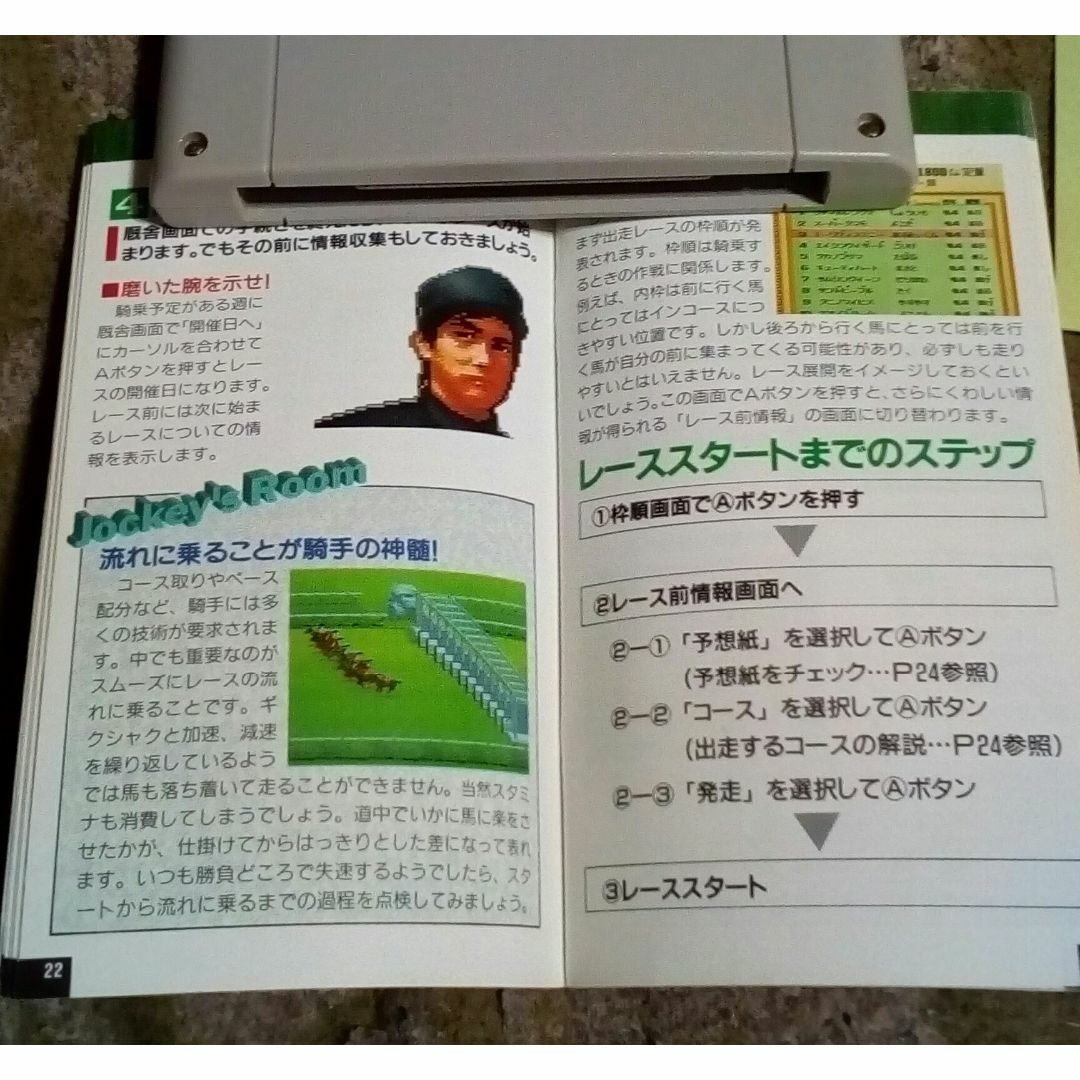 4
厩舎画面での手続きを
まります。でもその前に情報収集もしておきましょう。
■磨いた腕を示せ!
騎乗予定がある週に
厩舎画面で「開催日へ」
にカーソルを合わせて
Aボタンを押すとレー
スの開催日になります。
レース前には次に始ま
るレースについての情
報を表示します。
Jockey's Room
流れに乗ることが騎手の神髄!
コース取りやペース
配分など、騎手には多
くの技術が要求されま
す。中でも重要なのが
スムーズにレースの流
れに乗ることです。ギ
クシャクと加速、減速
を繰り返しているよう
では馬も落ち着いて走ることができません。当然スタミ
ナも消費してしまうでしょう。道中でいかに馬に楽をさ
せたかが、仕掛けてからはっきりとした差になって表れ
ます。いつも勝負どころで失速するようでしたら、スタ
ートから流れに乗るまでの過程を点検してみましょう。
22
1800 定量
まず出走レースの枠順が発
表されます。枠順は騎乗す
るときの作戦に関係します。
例えば、内枠は前に行く馬
にとってはインコースにつ
きやすい位置です。しかし後ろから行く馬にとっては前を行
く馬が自分の前に集まってくる可能性があり、必ずしも走り
やすいとはいえません。レース展開をイメージしておくとい
いでしょう。この画面でAボタンを押すと、さらにくわしい情
報が得られる「レース前情報」の画面に切り替わります。
レーススタートまでのステップ
①枠順画面でⒶボタンを押す
②レース前情報画面へ
②ー①「予想紙」を選択してⒶボタン
(予想紙をチェック…P24参照)
②ー②「コース」を選択してⒶボタン
(出走するコースの解説…P24参照)
②ー③「発走」を選択してⒶボタン
③レーススタート